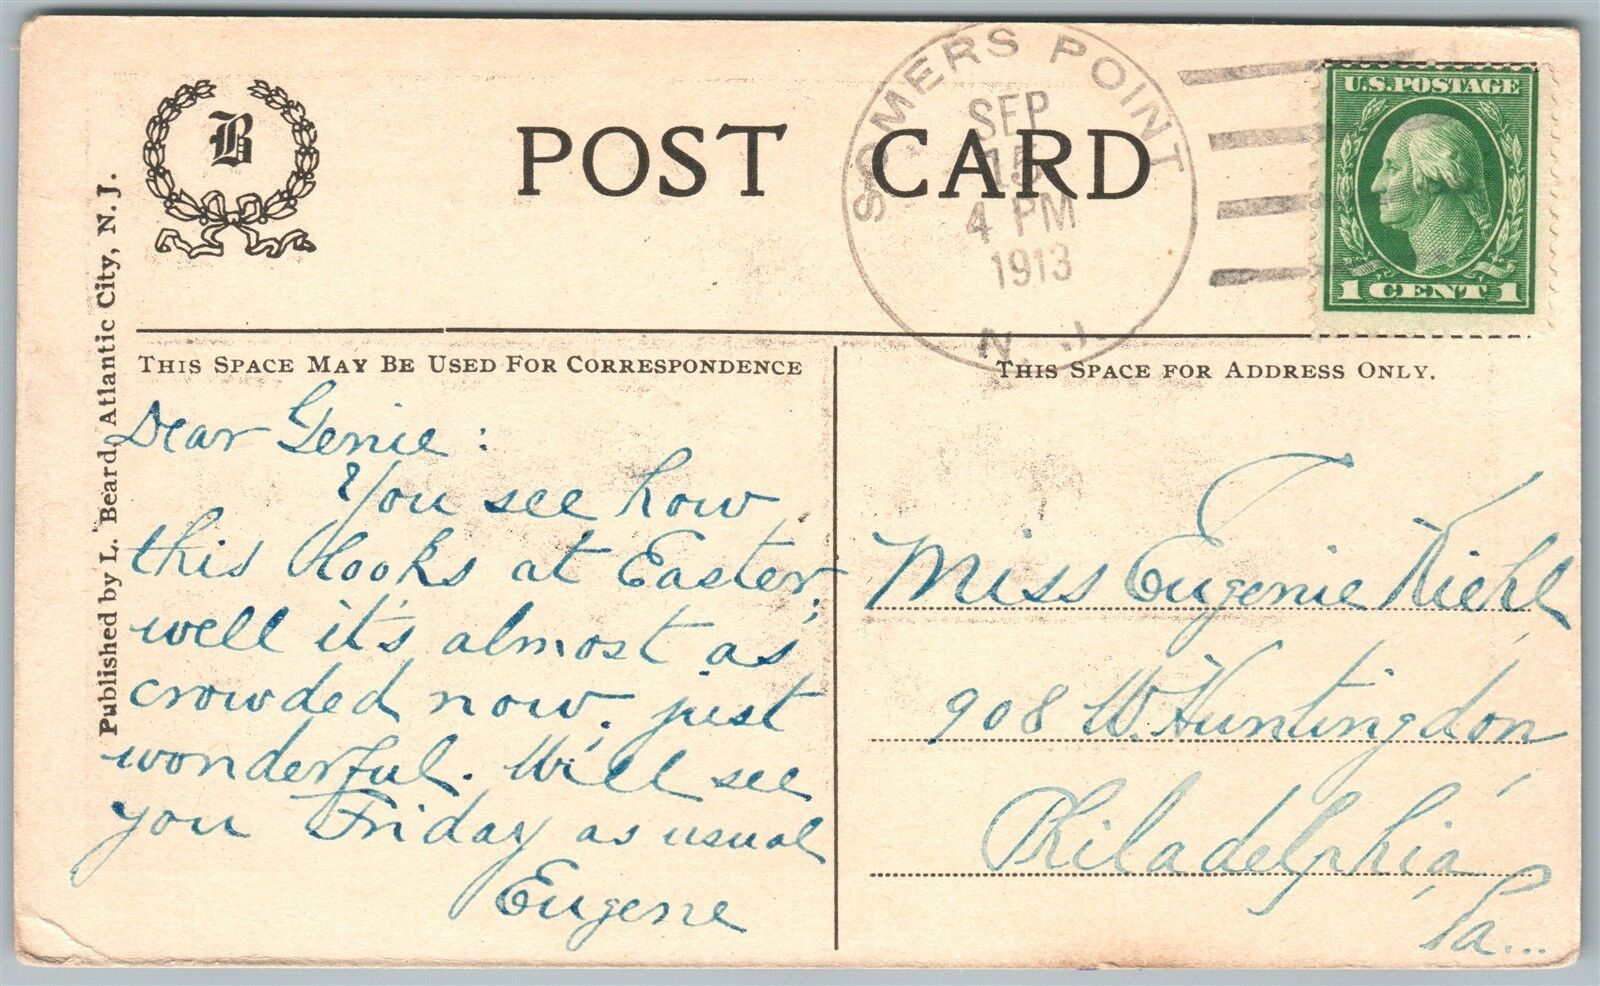 B
POST CARD
SOMERS POINT
SEP
15
4 PM
1913
N. J.
U.S. POSTAGE
1 CENT 1
Published by L. Beard, Atlantic City, N. J.
THIS SPACE MAY BE USED FOR CORRESPONDENCE
Dear Genie:
You see how
this looks at Easter,
well it's almost as
crowded now, just
wonderful. Will see
you Friday as usual
Eugene
THIS SPACE FOR ADDRESS ONLY.
Miss Eugenie Kiehl,
908 W. Huntingdon,
Philadelphia,
Pa...